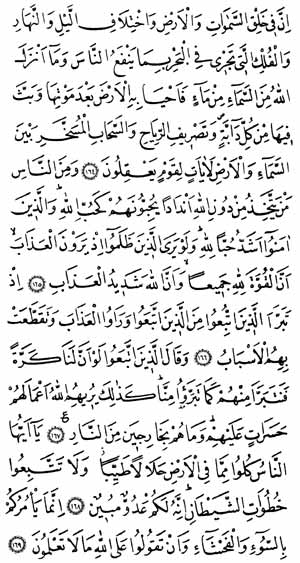 اِنَّ فِي خَلْقِ السَّمٰوَاتِ وَالْاَرْضِ وَاخْتِلَافِ الَّيْلِ وَالنَّهَارِ
وَالْفُلْكِ الَّتِي تَجْرِي فِي الْبَحْرِ بِمَا يَنْفَعُ النَّاسَ وَمَا اَنْزَلَ
اللّٰهُ مِنَ السَّمَاءِ مِنْ مَاءٍ فَاَحْيَا بِهِ الْاَرْضَ بَعْدَ مَوْتِهَا وَبَثَّ
فِيهَا مِنْ كُلِّ دَابَّةٍ وَتَصْرِيفِ الرِّيَاحِ وَالسَّحَابِ الْمُسَخَّرِ بَيْنَ
السَّمَاءِ وَالْاَرْضِ لَاٰيَاتٍ لِقَوْمٍ يَعْقِلُونَ ﴿١٦٤﴾ وَمِنَ النَّاسِ
مَنْ يَتَّخِذُ مِنْ دُونِ اللّٰهِ اَنْدَادًا يُحِبُّونَهُمْ كَحُبِّ اللّٰهِ وَالَّذِينَ
اٰمَنُوا اَشَدُّ حُبًّا لِلّٰهِ وَلَوْ يَرَى الَّذِينَ ظَلَمُوا اِذْ يَرَوْنَ الْعَذَابَ
اَنَّ الْقُوَّةَ لِلّٰهِ جَمِيعًا وَاَنَّ اللّٰهَ شَدِيدُ الْعَذَابِ ﴿١٦٥﴾ اِذْ
تَبَرَّاَ الَّذِينَ اتُّبِعُوا مِنَ الَّذِينَ اتَّبَعُوا وَرَاَوُا الْعَذَابَ وَتَقَطَّعَتْ
بِهِمُ الْاَسْبَابُ ﴿١٦٦﴾ وَقَالَ الَّذِينَ اتَّبَعُوا لَوْ اَنَّ لَنَا كَرَّةً
فَنَتَبَرَّاَ مِنْهُمْ كَمَا تَبَرَّؤُا مِنَّا كَذٰلِكَ يُرِيهِمُ اللّٰهُ اَعْمَالَهُمْ
حَسَرَاتٍ عَلَيْهِمْ وَمَا هُمْ بِخَارِجِينَ مِنَ النَّارِ ﴿١٦٧﴾ ع يَا اَيُّهَا
النَّاسُ كُلُوا مِمَّا فِي الْاَرْضِ حَلَالًا طَيِّبًا وَلَا تَتَّبِعُوا
خُطُوَاتِ الشَّيْطَانِ اِنَّهُ لَكُمْ عَدُوٌّ مُبِينٌ ﴿١٦٨﴾ اِنَّمَا يَاْمُرُكُمْ
بِالسُّوءِ وَالْفَحْشَاءِ وَاَنْ تَقُولُوا عَلَى اللّٰهِ مَا لَا تَعْلَمُونَ ﴿١٦٩﴾